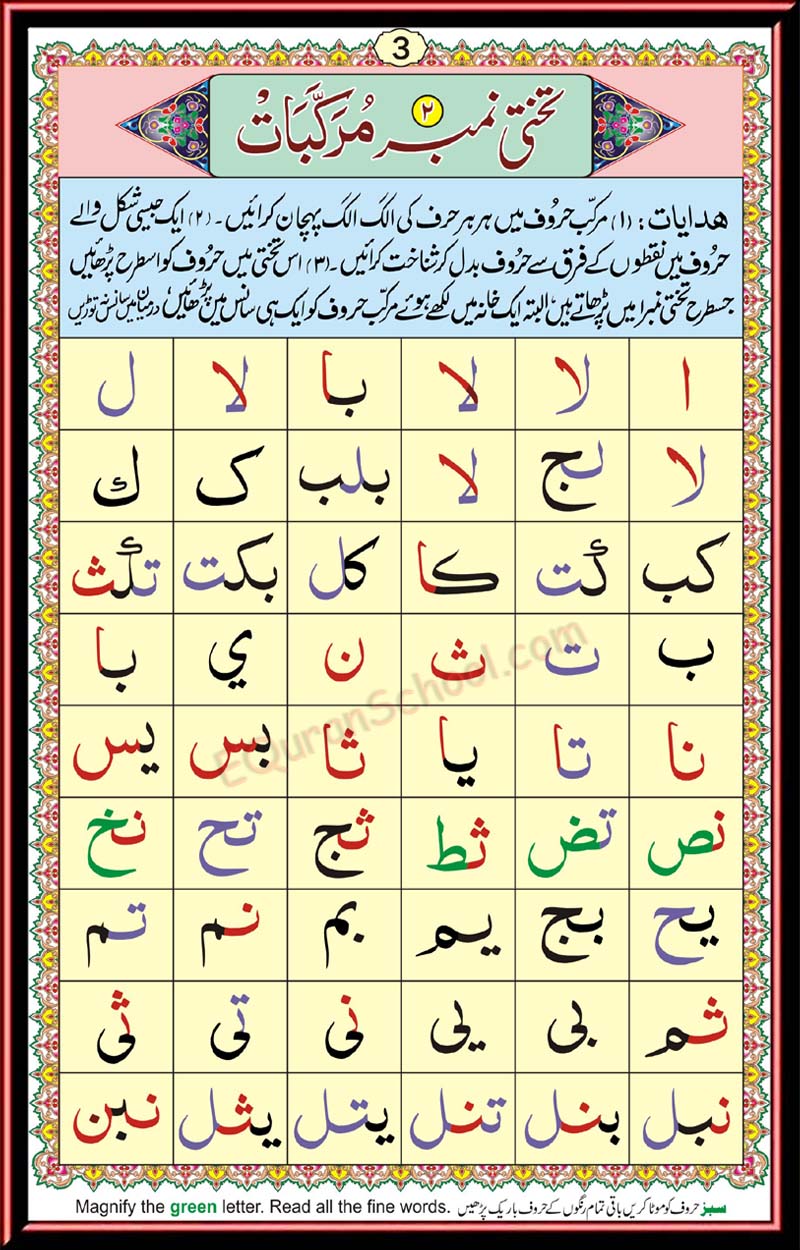 3
تختی نمبر ۲ مُرَکَّبَاتْ
ھدایات : (۱) مرکّب حرُوف میں ہر ہر حرف کی الگ الگ پہچان کرائیں۔ (۲) ایک جیسی شکل والے
حرُوف میں نقطوں کے فرق سے حرُوف بدل کر شناخت کرائیں۔ (۳) اس تختی میں حرُوف کو اسطرح پڑھائیں
جسطرح تختی نمبر۱ میں پڑھاتے ہیں، البتہ ایک خانہ میں لکھے ہوئے مرکّب حروف کو ایک ہی سانس میں پڑھائیں، درمیان میں سانس نہ توڑیں
ا لا لا با لا ل
لا لج لا بلب ک ك
کب گت کا کل بکت تگث
ب ت ث ن ي با
نا تا یا ثا بس یس
نص تض ثط ثج تح نخ
یح بج یم بم نم تم
ثم بی یی نی تی ثی
نبل بنل تنل یتل یثل نبن
EQuranSchool.com
Magnify the green letter. Read all the fine words. سبز حروف کو موٹا کریں باقی تمام رنگوں کے حروف باریک پڑھیں